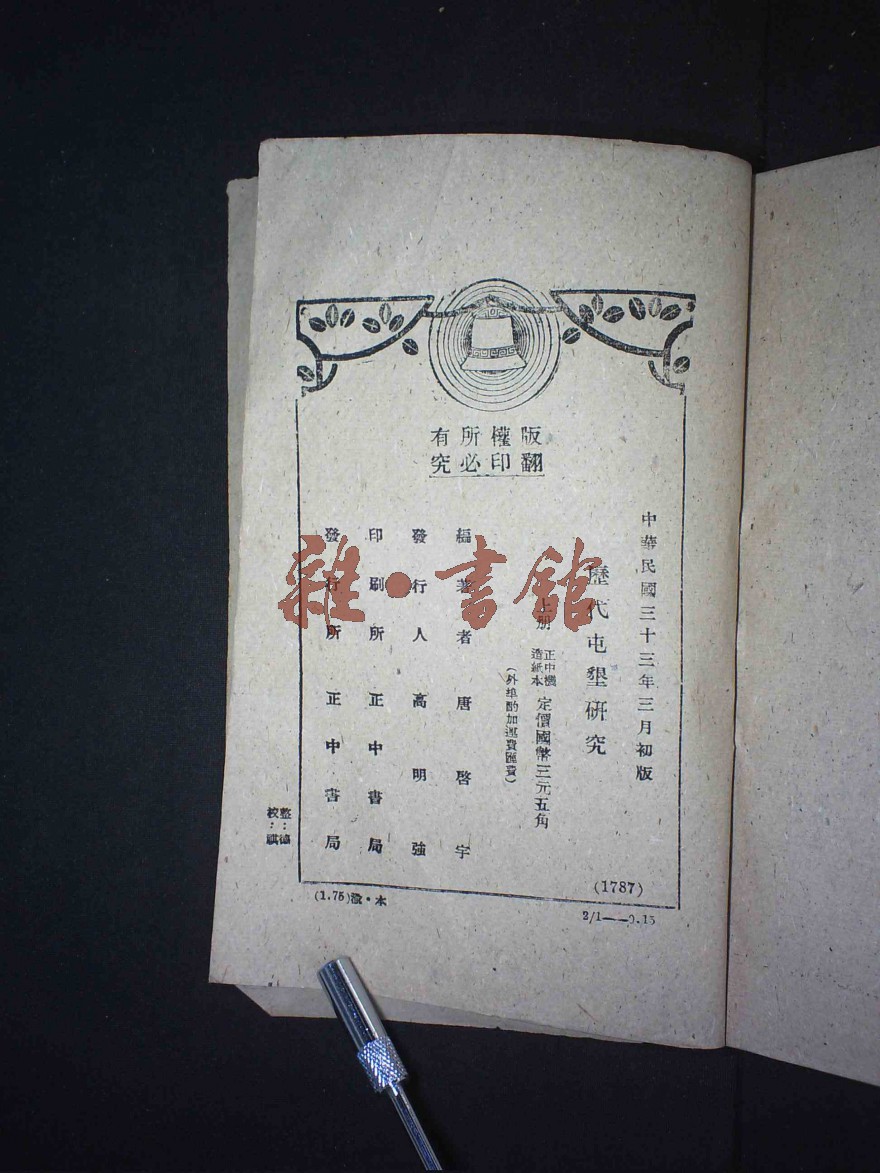 版權所有
翻印必究
中華民國三十三年三月初版
歷代屯墾研究
上册
正中機
造紙本
定價國幣三元五角
(外埠酌加運費匯費)
編著者 唐啓宇
發行人 高明強
印刷所 正中書局
發行所 正中書局
(1787)
校:
整:
(1.75)
本
2/1
雜·書館